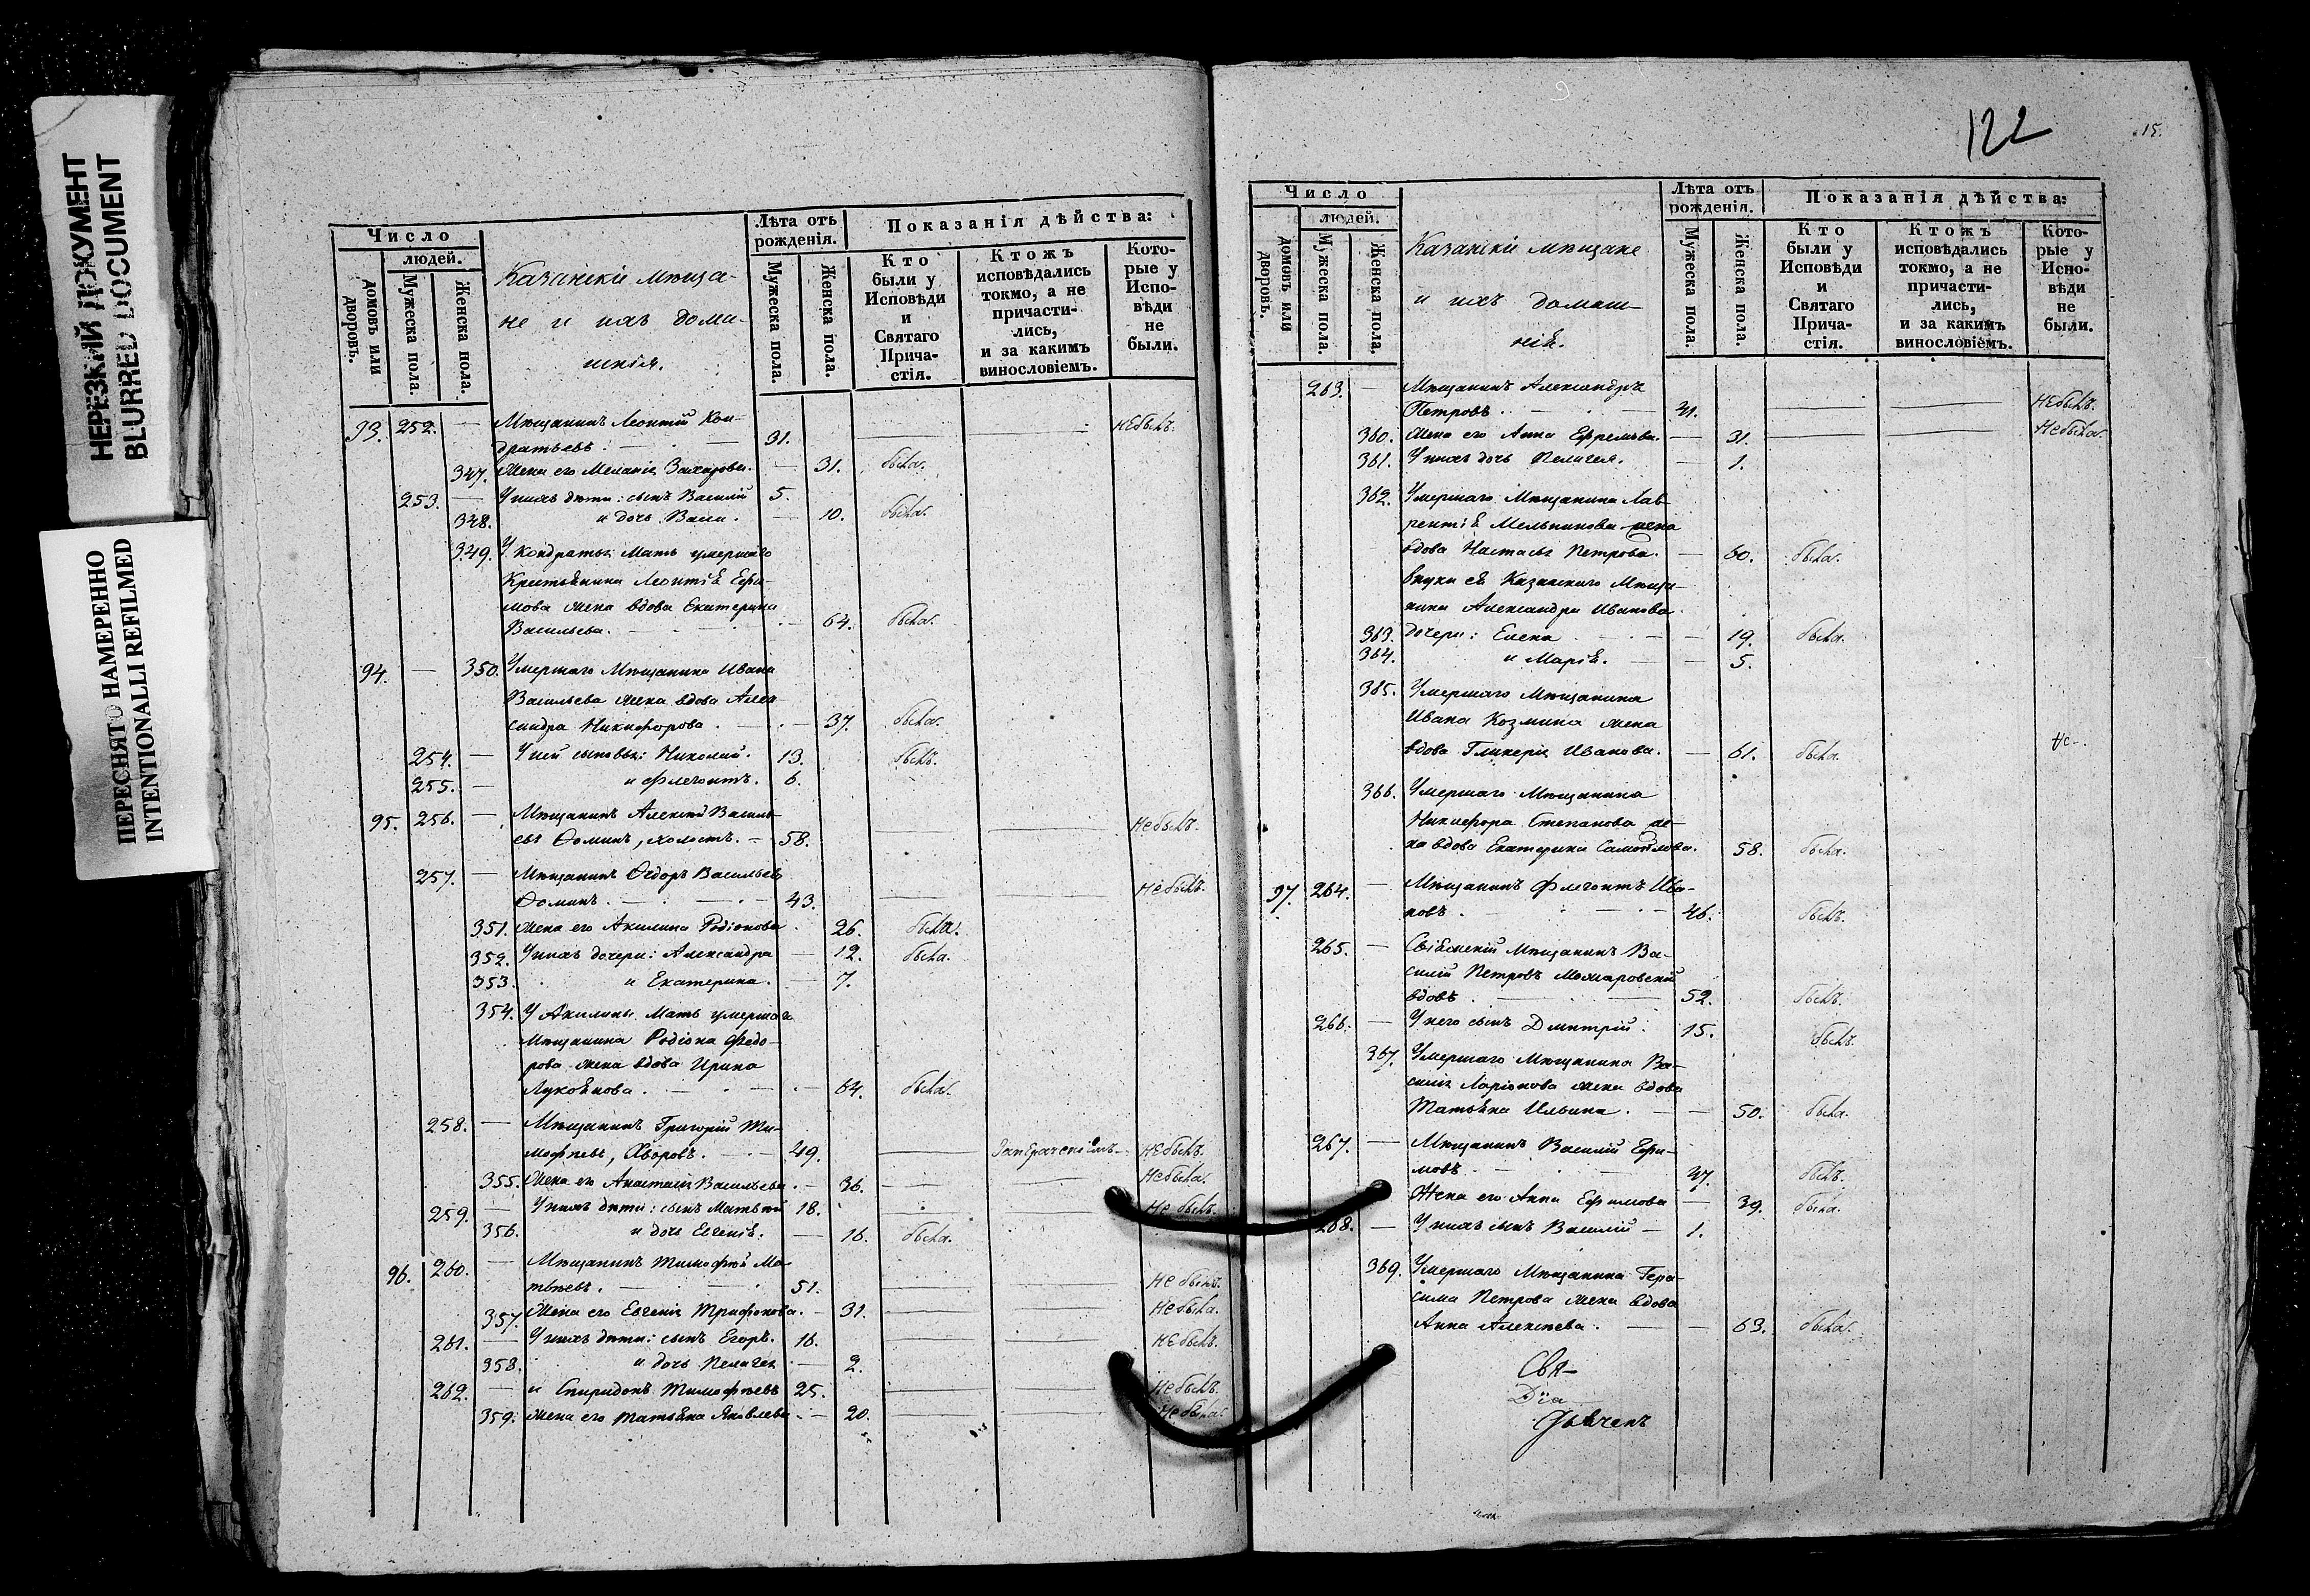 НЕРЕЗКИЙ ДОКУМЕНТ
BLURRED DOCUMENT
ПЕРЕСНЯТО НАМЕРЕННО
INTENTIONALLI REFILMED
Число
людей.
домовъ или дворовъ.
Мужеска пола.
Женска пола.
Казанскіи мѣща-
не и ихъ дома-
шнія.
Лѣта отъ рожденія.
Мужеска пола.
Женска пола.
Показанія дѣйства:
Кто были у Исповѣди и Святаго Прича-стія.
Ктожъ исповѣдались токмо, а не причасти-лись, и за какимъ винословіемъ.
Кото-рые у Испо-вѣди не были.
93. 252. — Мѣщанинъ Леонтій Кон-
дратьевъ. — 31. небылъ.
347. Жена его Меланія Захарова. — 31. была.
253. — У нихъ дѣти: сынъ Василій 5.
348. и дочь Васса. — 10. была.
349. У Кондратья Мать умершаго
Крестьянина Леонтія Ефи-
мова жена вдова Екатерина
Васильева. — 64. была.
94. — 350. Умершаго Мѣщанина Ивана
Васильева жена вдова Алек
сандра Никифорова. — 37. была.
254. — У ней сыновья: Николай. 13. былъ.
255. — и Флегонтъ. 6.
95. 256. — Мѣщанинъ Алексей Василь-
евъ Ѳоминъ, холостъ. — 58. небылъ.
257. — Мѣщанинъ Ѳедоръ Васильевъ
Ѳоминъ. — 43. небылъ.
351. Жена его Акилина Родіонова. 26. была.
352. У нихъ дочери: Александра — 12. была.
353. и Екатерина. — 7.
354. У Акилины Мать умершаго
Мѣщанина Родіона Федо-
рова жена вдова Ирина
Лукоянова. — 64. была.
258. — Мѣщанинъ Григорій Ти-
мофѣевъ, Хворовъ. — 49. небылъ.
355. Жена его Анастасія Васильева. — 36. небыла.
259. — У нихъ дѣти: сынъ Матвѣй 18. небылъ.
356. и дочь Евгенія. — 16. была.
96. 260. — Мѣщанинъ Тимофѣй Ма-
твѣевъ. — 51. небылъ.
357. Жена его Евгенія Трифонова. — 31. небыла.
261. — У нихъ дѣти: сынъ Егоръ. 16. небылъ.
358. и дочь Пелагея — 2.
262. — и Спиридонъ Тимофѣевъ 25. небылъ.
359. жена его Татьяна Яковлева. — 20. небыла.
122
15.
Число
людей.
домовъ или дворовъ.
Мужеска пола.
Женска пола.
Казанскіи мѣщане
и ихъ домаш-
нія.
Лѣта отъ рожденія.
Мужеска пола.
Женска пола.
Показанія дѣйства:
Кто были у Исповѣди и Святаго Прича-стія.
Ктожъ исповѣдались токмо, а не причасти-лись, и за какимъ винословіемъ.
Кото-рые у Испо-вѣди не были.
263. — Мѣщанинъ Александръ
Петровъ. — небылъ.
360. Жена его Анна Ефремова. — 31. небыла.
361. У нихъ дочь Пелагея. — 1.
362. Умершаго Мѣщанина Лав-
рентія Мельникова жена
вдова Настасья Петрова. — 60. была.
внуки ея Казанскаго Мѣща-
нина Александра Иванова
363. дочери: Елена — 19. была.
364. и Марія. — 5.
365. Умершаго Мѣщанина
Ивана Козмина жена
вдова Гликерія Иванова. — 61. была.
366. Умершаго Мѣщанина
Никифора Степанова же-
на вдова Екатерина Самойлова. 58. была.
97. 264. — Мѣщанинъ Флегонтъ Ива-
новъ. — 46. былъ.
265. — Свіяжскій Мѣщанинъ Ва-
силій Петровъ
вдовъ. — 52. былъ.
266. — У него сынъ Дмитрій. 15. былъ.
367. Умершаго Мѣщанина Ва-
силія Ларіонова жена вдова
Татьяна Ильина. — 50. была.
267. — Мѣщанинъ Василій Ефи-
мовъ. — 47. былъ.
Жена его Анна Ефимова — 39. была.
268. — У нихъ сынъ Василій — 1.
369. Умершаго Мѣщанина Гера-
сима Петрова жена вдова
Анна Алексѣева. — 63. была.
Свя-
Діа